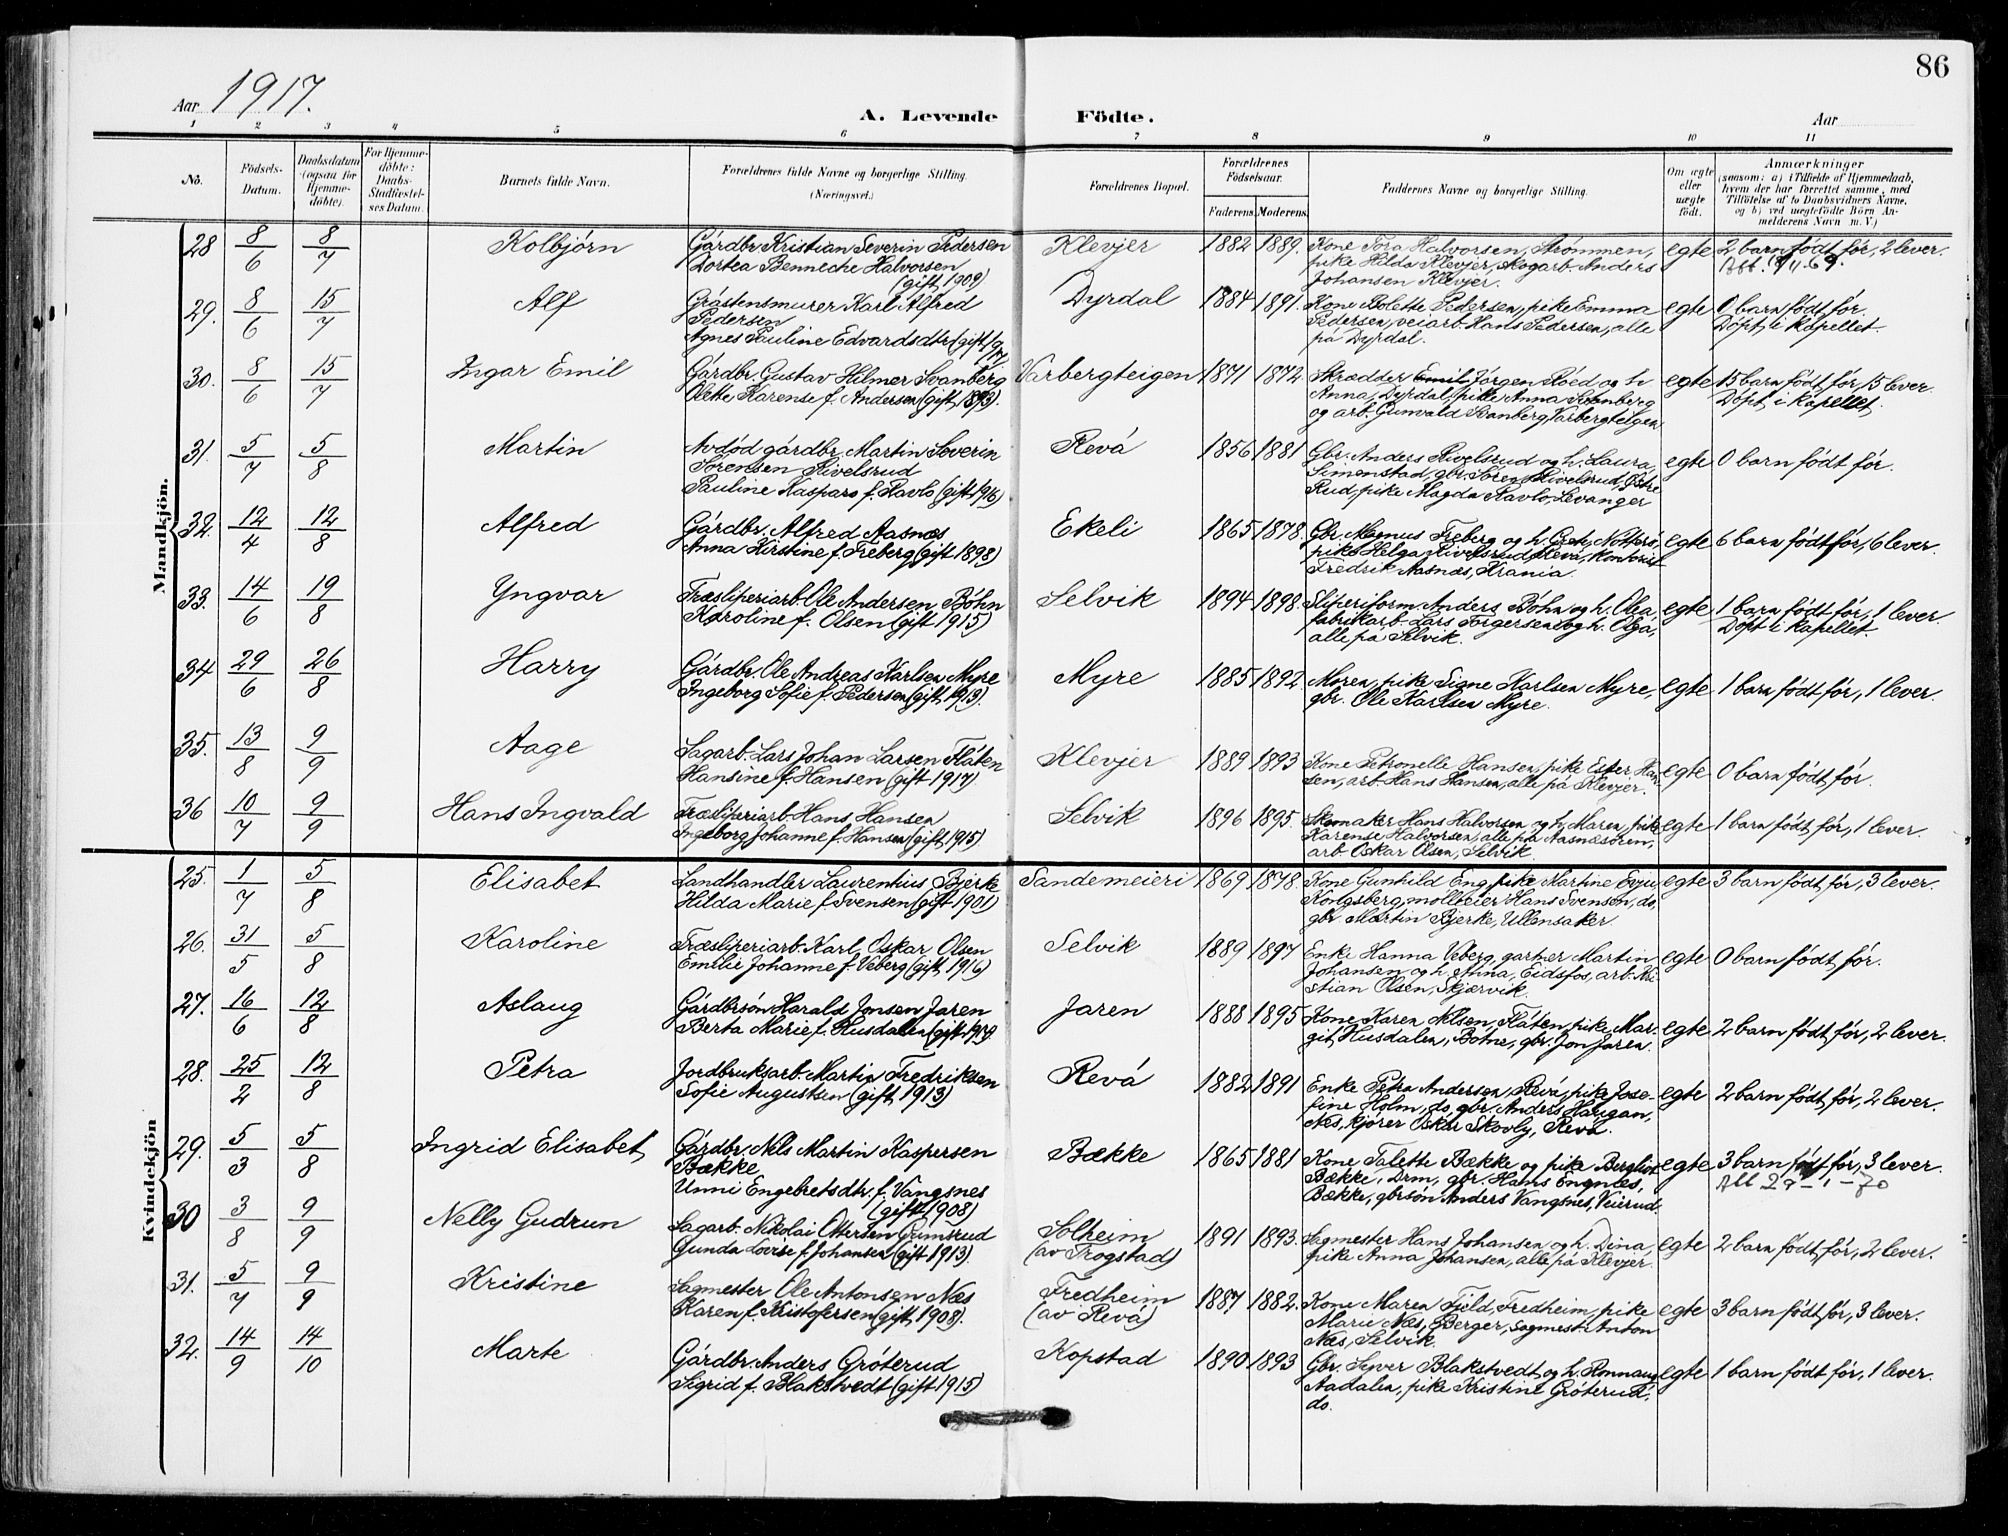 86
Aar 1917.
A. Levende Födte.
Aar
1 2 3 4 5 6 7 8 9 10 11
No.
Födsels-Datum.
Daabsdatum (ogsaa for Hjemme-döbte).
For Hjemme-döbte: Daabs-Stadfæstel-ses Datum.
Barnets fulde Navn.
Forældrenes fulde Navne og borgerlige Stilling.
(Næringsvei.)
Forældrenes Bopæl.
Forældrenes Födselsaar.
Faderens. Moderens.
Faddernes Navne og borgerlige Stilling.
Om ægte eller uægte födt.
Anmærkninger
(saasom: a) i Tilfælde af Hjemmedaab, hvem der har forrettet samme, med Tilföielse af to Daabsvidners Navne, og b) ved uægtefödte Börn An-melderens Navn m. V.)
Mandkjön.
28 8/6 8/7 Kolbjørn Gårdbr. Kristian Severin Pedersen Klevjer 1882 1889. Kone Tora Halvorsen, Strommen, egte 2 barn født før, 2 lever.
Dortea Benneche Halvorsen pike Hilda Klevjer, skogarb. Anders
(gift 1909) Johansen Klevjer.
29. 8/6 15/7 Alf Gråstensmurer Karl Alfred Dyrdal 1884 1891. Kone Bolette Pedersen, pike Emma egte 0 barn født før.
Pedersen Pedersen, veiarb. Hans Pedersen, alle Døpt i kapellet.
Agnes Pauline Edvardsdtr. (gift på Dyrdal.
30. 8/6 15/7 Ingar Emil Gårdbr. Gustav Hilmer Svanberg Varbergteigen 1871 1872. Skrædder Jørgen Røed og h. egte 15 barn født før, 15 lever
Olette Karense f. Andersen (gift 1893). Anna, Dyrdal, pike Anna Svanberg Døpt i kapellet.
og arb. Gunvald Svanberg, Varbergteigen
31. 5/7 5/8 Martin Avdød gårdbr. Martin Severin Revå 1856 1881 Gbr. Anders Rivelsrud og h. Laura, egte 0 barn født før.
Sørensen Rivelsrud Simenstad, gbr. Søren Rivelsrud, Østre
Pauline Kaspara f. Ravlo (gift 1916) Rud, pike Magda Ravlo, Levanger
32. 12/4 12/8 Alfred Gårdbr. Alfred Aasnæs Ekeli 1865 1878. Gbr. Magnus Freberg og h. Nøtterø, egte 6 barn født før, 6 lever.
Anna Kirstine f. Freberg (gift 1898) pike Helga Rivelsrud, Revå, kontorist
Fredrik Aasnæs, Krania.
33. 14/6 19/8 Yngvar Træsliperiarb. Ole Andersen Bøhn Selvik 1894 1898. Sliperiform. Anders Bøhn og h. Olea, egte 1 barn født før, 1 lever.
Karoline f. Olsen (gift 1915) fabrikarb. Lars Torgersen og h. Olga, Døpt i kapellet.
alle på Selvik.
34 29/6 26/8 Harry Gårdbr. Ole Andreas Karlsen Myre Myre 1885 1892 Moren, pike Signe Karlsen Myre, egte 1 barn født før, 1 lever.
Ingeborg Sofie f. Pedersen (gift 1913). gbr. Ole Karlsen Myre.
35. 13/8 9/9 Aage Sagarb. Lars Johan Larsen Flåten Klevjer 1889 1893 Kone Petronelle Hansen, pike Ester Han- egte 0 barn født før.
Hansine f. Hansen (gift 1917) sen, arb. Hans Hansen, alle på Klevjer.
36 10/7 9/9 Hans Ingvald Træsliperiarb. Hans Hansen Selvik 1896 1895. Skomaker Hans Halvorsen og h. Maren, pike egte 1 barn født før, 1 lever.
Ingeborg Johanne f. Hansen (gift 1915) Karense Halvorsen, alle på Aasnæsøren,
arb. Oskar Olsen, Selvik.
Kvindekjön
25. 1/7 5/8 Elisabet Landhandler Laurentius Bjerke Sandemeieri 1869 1878. Kone Gunhild Eng, pike Martine Evju egte 3 barn født før, 3 lever.
Hilda Marie f. Svensen (gift 1901) Kongsberg, møllbeier Hans Svensen, do,
gbr. Martin Bjerke, Ullensaker.
26. 31/5 5/8 Karoline Træsliperiarb. Karl Oskar Olsen Selvik 1889 1897 Enke Hanna Veberg, gartner Martin egte 0 barn født før.
Emilie Johanne f. Veberg (gift 1916) Johansen og h. Anna, Eidsfos, arb. Kri-
stian Olsen, Skjærvik.
27. 16/6 12/8 Aslaug Gårdbrsøn Harald Jonsen Jaren Jaren 1888 1895 Kone Karen Nilsen, Flåten, pike Mar- egte 2 barn født før, 2 lever.
Berta Marie f. Husdalen (gift git Husdalen, Botne, gbr. Jon Jaren.
28. 25/2 12/8 Petra Jordbruksarb. Martin Fredriksen Revå 1882 1891 Enke Petra Andersen, Revå, pike Jose- egte 2 barn født før, 2 lever.
Sofie Augustsen (gift 1913) fine Holm, do, gbr. Anders Haugan,
Nes, kjører Oskar Skovly, Revå.
29. 5/3 5/8 Ingrid Elisabet Gårdbr. Nils Martin Kaspersen Bække 1865 1881 Kone Talette Bække og pike Bergliot egte 3 barn født før, 3 lever.
Bække Bække, Drm, gbr. Hans Engnes,
Unni Engebretsdtr. f. Vangsnes Bække, gbrsøn Anders Vangsnes, Veierud
(gift 1908)
30 3/8 9/9 Nelly Gudrun Sagarb. Nikolai Ottersen Gumserud Solheim 1891 1893. Sagmester Hans Johansen og h. Dina, egte 2 barn født før, 2 lever.
Gunda Lovise f. Johansen (gift 1913). (av Trogstad) pike Anna Johansen, alle på Klevjer
31. 5/7 9/9 Kristine Sagmester Ole Antonsen Næs Fredheim 1887 1882. Kone Maren Fjeld, Fredheim, pike egte 3 barn født før, 3 lever.
Karen f. Kristofersen (gift 1908). (av Revå) Marie Næs, Berger, sagmest. Anton
Næs, Selvik.
32. 14/9 14/10 Marte Gårdbr. Anders Grøterud Kopstad 1890 1893 Gbr. Syver Blakstvedt og h. Ronnaug egte 1 barn født før, 1 lever.
Sigrid f. Blakstvedt (gift 1915) Aadalen, pike Kristine Grøterud,
do.